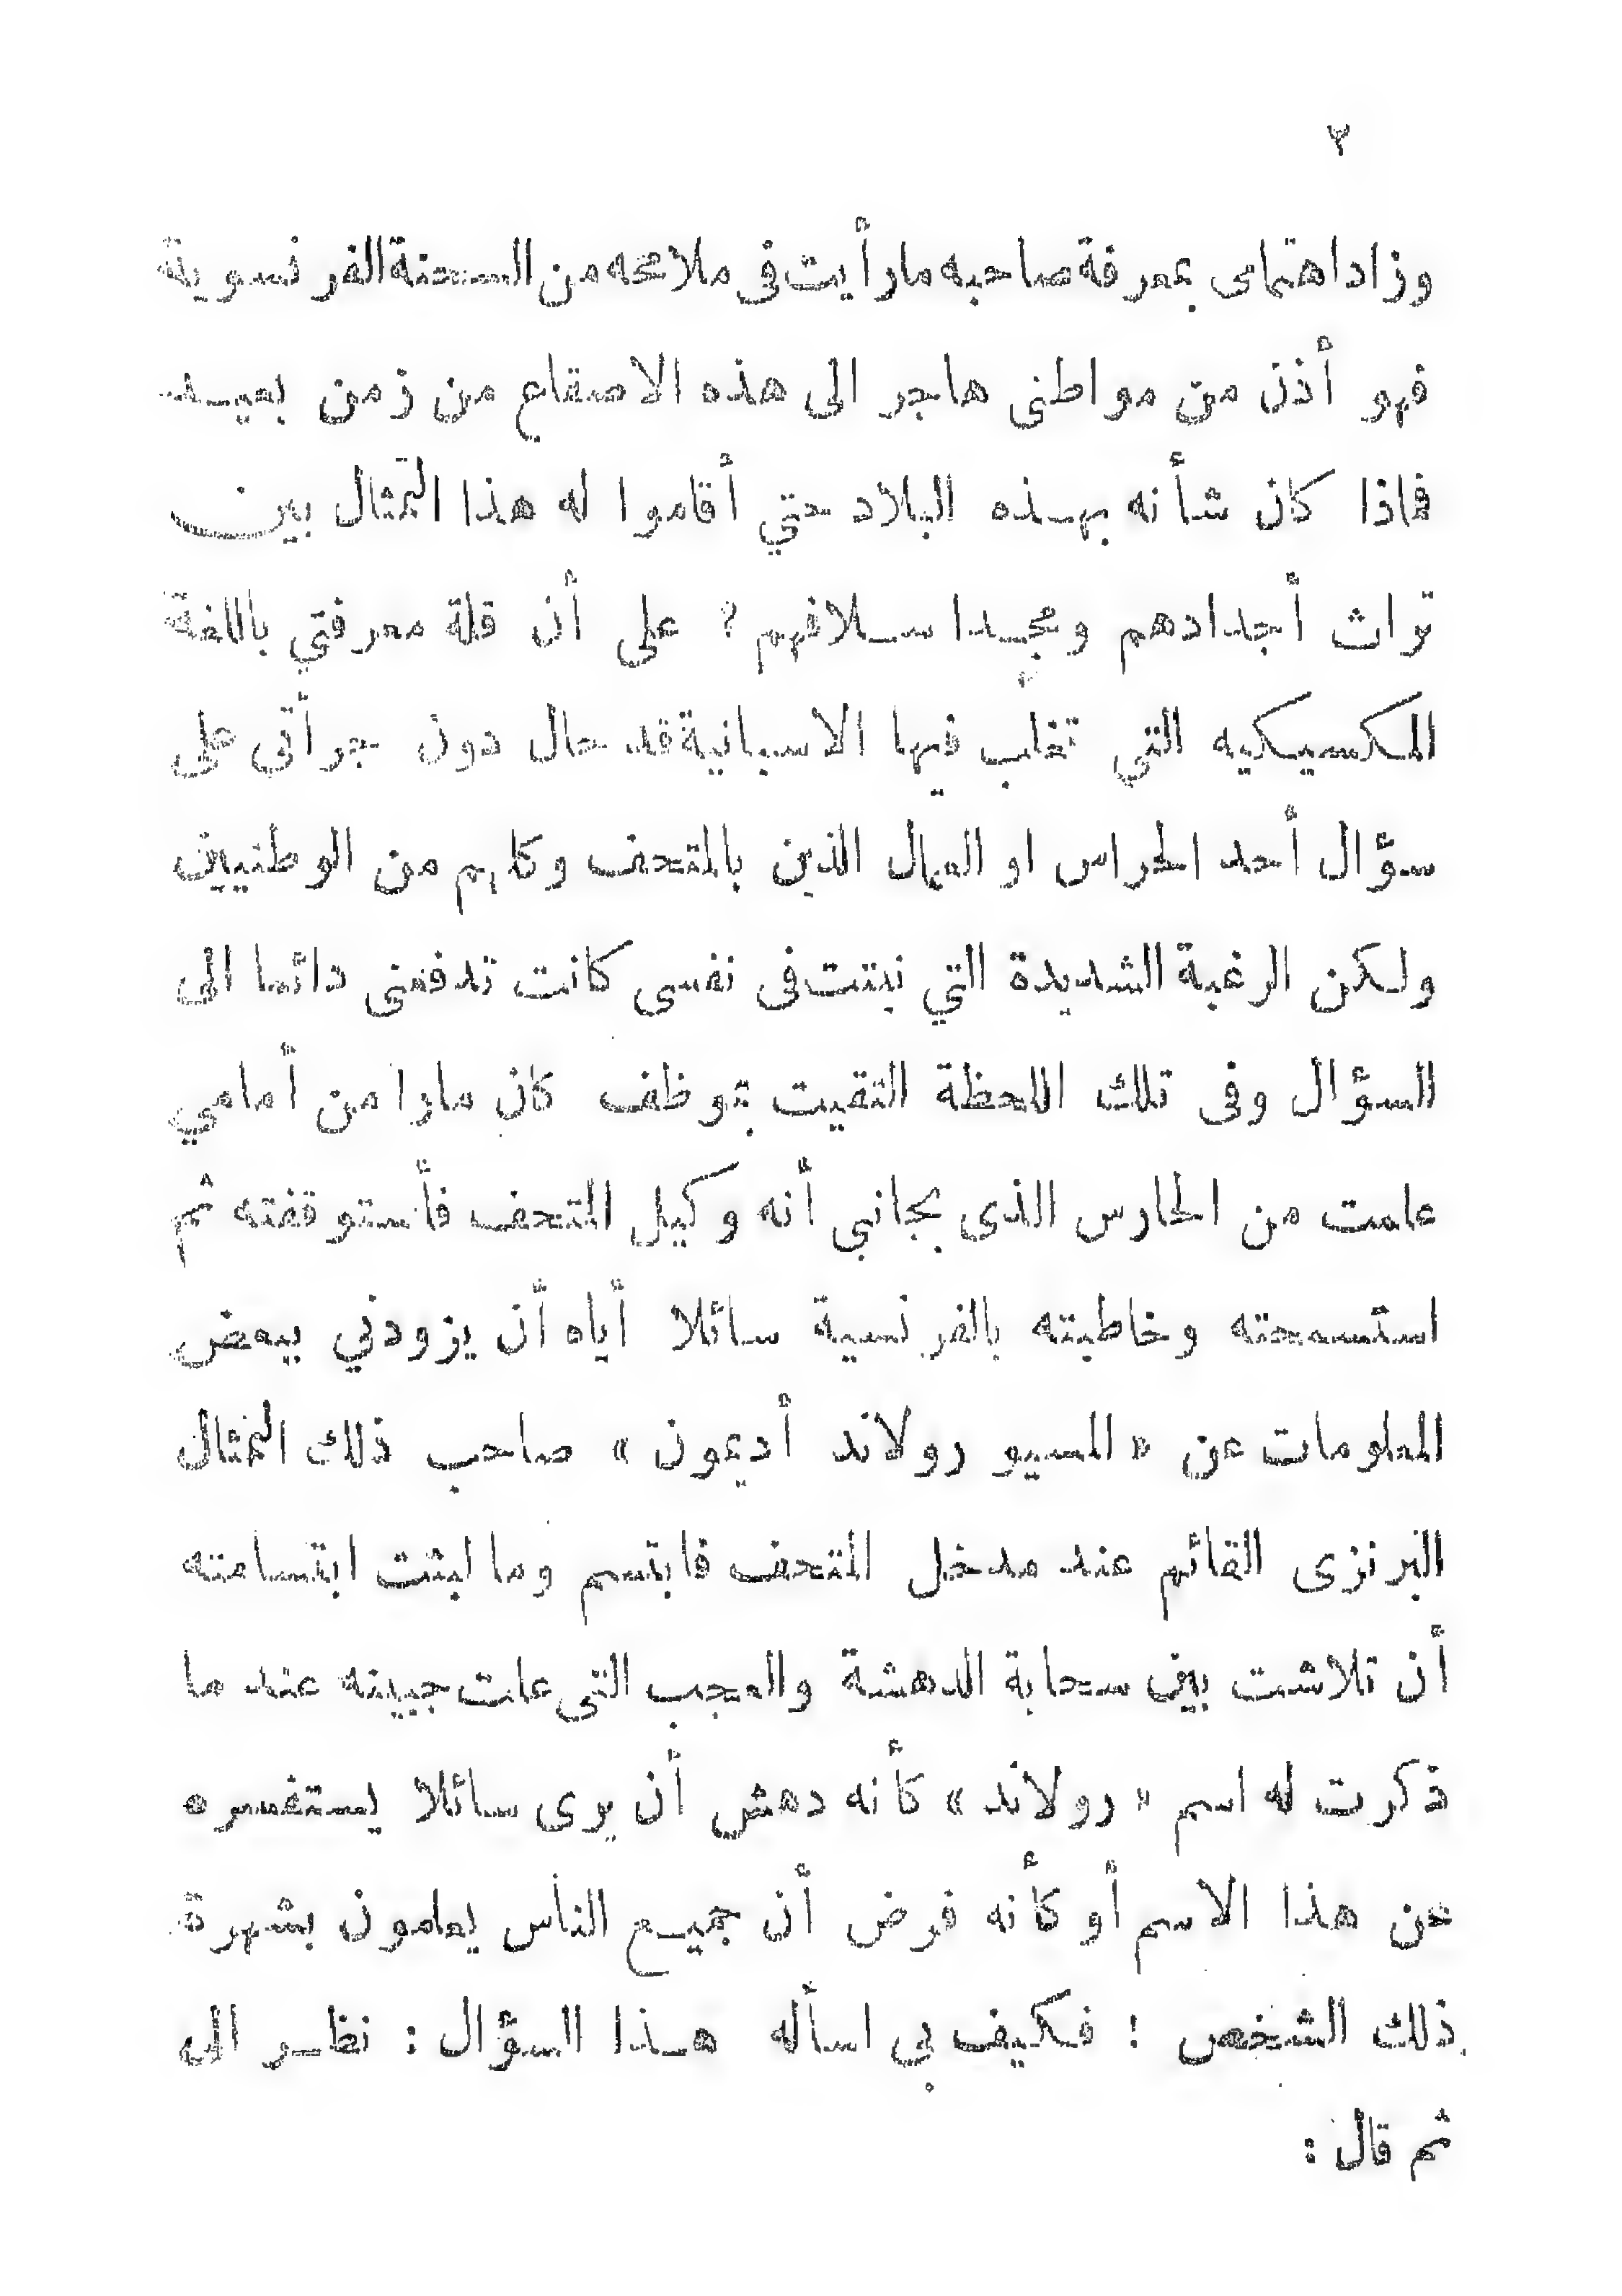 ٣
وزاد اهتمامى بمعرفة صاحبه مارأيت فى ملامحه من السحنة الفرنسوية
فهو أذن من مواطنى هاجر الى هذه الاصقاع من زمن بعيد
فماذا كان شأنه بهذه البلاد حتي أقاموا له هذا التمثال بين
تراث أجدادهم ومجد اسلافهم ؟ على أن قلة معرفتي باللغة
المكسيكيه التي تغلب فيها الاسبانية قد حال دون جرأتى على
سؤال أحد الحراس او العمال الذين بالمتحف وكلهم من الوطنيين
ولكن الرغبة الشديدة التي نبتت فى نفسى كانت تدفعنى دائما الى
السؤال وفى تلك اللحظة التقيت بموظف كان مارا من أمامي
علمت من الحارس الذى بجانبى أنه وكيل المتحف فأستوقفته ثم
استسمحته وخاطبته بالفرنسية سائلا أياه أن يزودني ببعض
المعلومات عن « المسيو رولاند أديمون » صاحب ذلك التمثال
البرنزى القائم عند مدخل المتحف فابتسم وما لبثت ابتسامته
أن تلاشت بين سحابة الدهشة والعجب التى علت جبينه عند ما
ذكرت له اسم « رولاند » كأنه دهش أن يرى سائلا يستفسره
عن هذا الاسم أو كأنه فرض أن جميع الناس يعلمون بشهرة
ذلك الشخص ! فكيف بي اسأله هذا السؤال : نظر الى
ثم قال :